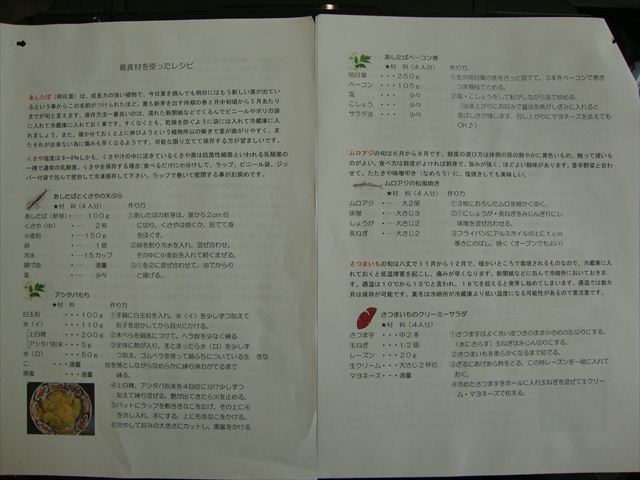 島食材を使ったレシピ
あしたば（明日葉）は、成長力の強い植物で、今日葉を摘んでも明日にはもう新しい葉が出て
いるという事からこの名前がつけられたほど。最も新芽を出す時期の春２月中旬頃から５月あたり
までが旬と言えます。保存方法一番良いのは、濡れた新聞紙などでくるんでビニールやポリの袋
に入れて冷蔵庫に入れておく事です。すくなくとも、乾燥を防ぐように袋には入れて冷蔵庫に入れ
ましょう。また、寝かせておくと上に伸びようという植物所以の働きで茎が曲がりやすく、ま
たそれが出来ない為に傷みも早くなるようです。可能な限り立てて保存する方が望ましいです。
くさや塩度は6~8%しかも、くさや汁の中に活きているくさや菌は抗菌性細菌といわれる乳酸菌の
一種で通常の乳酸菌。くさやを保存する場合：食べるだけに小分けして、ラップ、ビニール袋、ジッ
パー付袋で包んで密封して冷凍保存して下さい。ラップで巻いて密閉する事がお奨めです。
あしたばとくさやの天ぷら
★材 料（４人分） 作り方
あしたば（新芽）・・・１００ｇ ①あしたばの新芽は、茎から２cm位
くさや（中） ・・・２枚 に切り、くさやは焼くか、茹でて身
小麦粉 ・・・１５０ｇ をほぐす。
卵 ・・・１個 ②卵を割り冷水を入れ、混ぜ合わせ、
冷水 ・・・１.５カップ その中に小麦粉を入れて軽くまぜる。
揚げ油 ・・・適量 ③①を②に混ぜ合わせて、油でからり
塩 ・・・少々 と揚げる。
アシタバもち
★材 料（４人分） 作り方
白玉粉 ・・・１００ｇ ①手鍋に白玉粉を入れ、水（イ）を少しずつ加えて
水（イ） ・・・１１０ｇ 粒子を溶かしてから弱火にかける。
上白糖 ・・・２００ｇ ②木ベラを鍋底につけて、ヘラ数を少なく練る
アシタバ粉末 ・・・５ｇ ③全体に熱が入り、まとまったら水（ロ）を少しず
水（ロ） ・・・５０ｇ つ加え、ゴムベラを使って鍋ぶちについている生
こ ・・・適量 地を落としながらなめらかに練り弾力がでるまで
黒蜜 ・・・適量 練る。
④上白糖、アシタバ粉末を４回位に分け少しずつ
加えて練り混ぜる。艶が出てきたら火を止める。
⑤バットにラップを敷ききなこを広げ、その上に④
を流し入れ、手にする。上にもきなこをかける。
⑥冷やして好みの大きさにカットし、黒蜜をかける
あしたばベーコン巻
★材 料（４人分） 作り方
明日葉 ・・・２５０ｇ ①生の明日葉の茎をさっと茹でて、３本をベーコンで巻き
ベーコン ・・・１０５ｇ つま楊枝でとめる。
塩 少々 ②塩・こしょうをして転がしながら油で炒める。
こしょう 少々 （出来上がりにお好みで醤油を焦がしぎみに入れると
サラダ油 少々 香ばしさが増します。召し上がりにマヨネーズを添えても
OK♪）
ムロアジの旬は６月から８月です。鮮度の選び方は体側の筋の鮮やかに黄色いもの、触って硬いも
のがよい。食べ方は鮮度がよければ刺身で、旨みが強く、ほどよい酸味があります。香草野菜と合
わせて、たたきや味噌叩き（なめろう）に、塩焼きしても美味しい。
ムロアジの松風焼き
★材 料（４人分） 作り方
ムロアジ ・・・大２尾 ①３枚におろしたムロを細かく叩く。
味噌 ・・・大さじ３ ②①にしょうが・長ねぎをみじんぎりにし
しょうが ・・・大さじ２ 味噌を混ぜ合わせる。
長ねぎ ・・・大さじ２ ③フライパンにアルミホイルの上に１cm
厚さにのばし、焼く（オーブンでもよい）
さつまいもの旬は八丈で１１月から１２月で、暖かいところで栽培されるものなので、冷蔵庫に入
れておくと低温障害を起こし、傷みが早くなります。新聞紙などに包んで冷暗所においておきま
す。適温は１０℃から１５℃と言われ、１８℃を超えると発芽し始めてしまいます。適温では数カ
月は保存が可能です。真冬は冷暗所が冷蔵庫より低い温度になる可能性があるので要注意です。
さつまいものクリーミーサラダ
★材 料（４人分） 作り方
さつま芋 ・・・中２本 ①さつま芋はよく洗い皮つきのまま小さめの乱切りにする。
玉ねぎ ・・・１/２個 （水にさらす）玉ねぎはみじん切りにする。
レーズン ・・・２０ｇ ②さつまいもを柔かくなるまで茹でる。
生クリーム・・・大さじ２杯位 ③ざるにあげあら熱をとる、この時レーズンを一緒に入れて
マヨネーズ・・・適量 おく。
④冷めたさつま芋をボールに入れ玉ねぎを混ぜて生クリー
ム・マヨネーズで和える。